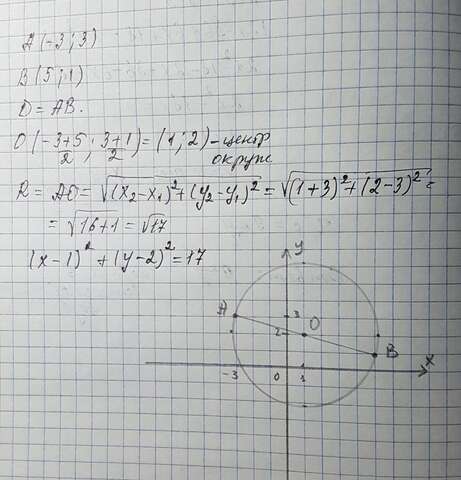 A(-3; 3)
B(5; 1)
D = AB.
O(-3+5/2; 3+1/2) = (1; 2) - центр
окруж
R = AO = √(x₂-x₁)²+(y₂-y₁)² = √(1+3)²+(2-3)² =
= √16+1 = √17
(x-1)²+(y-2)²=17
y
A
3
O
2
B
x
-3
0
1